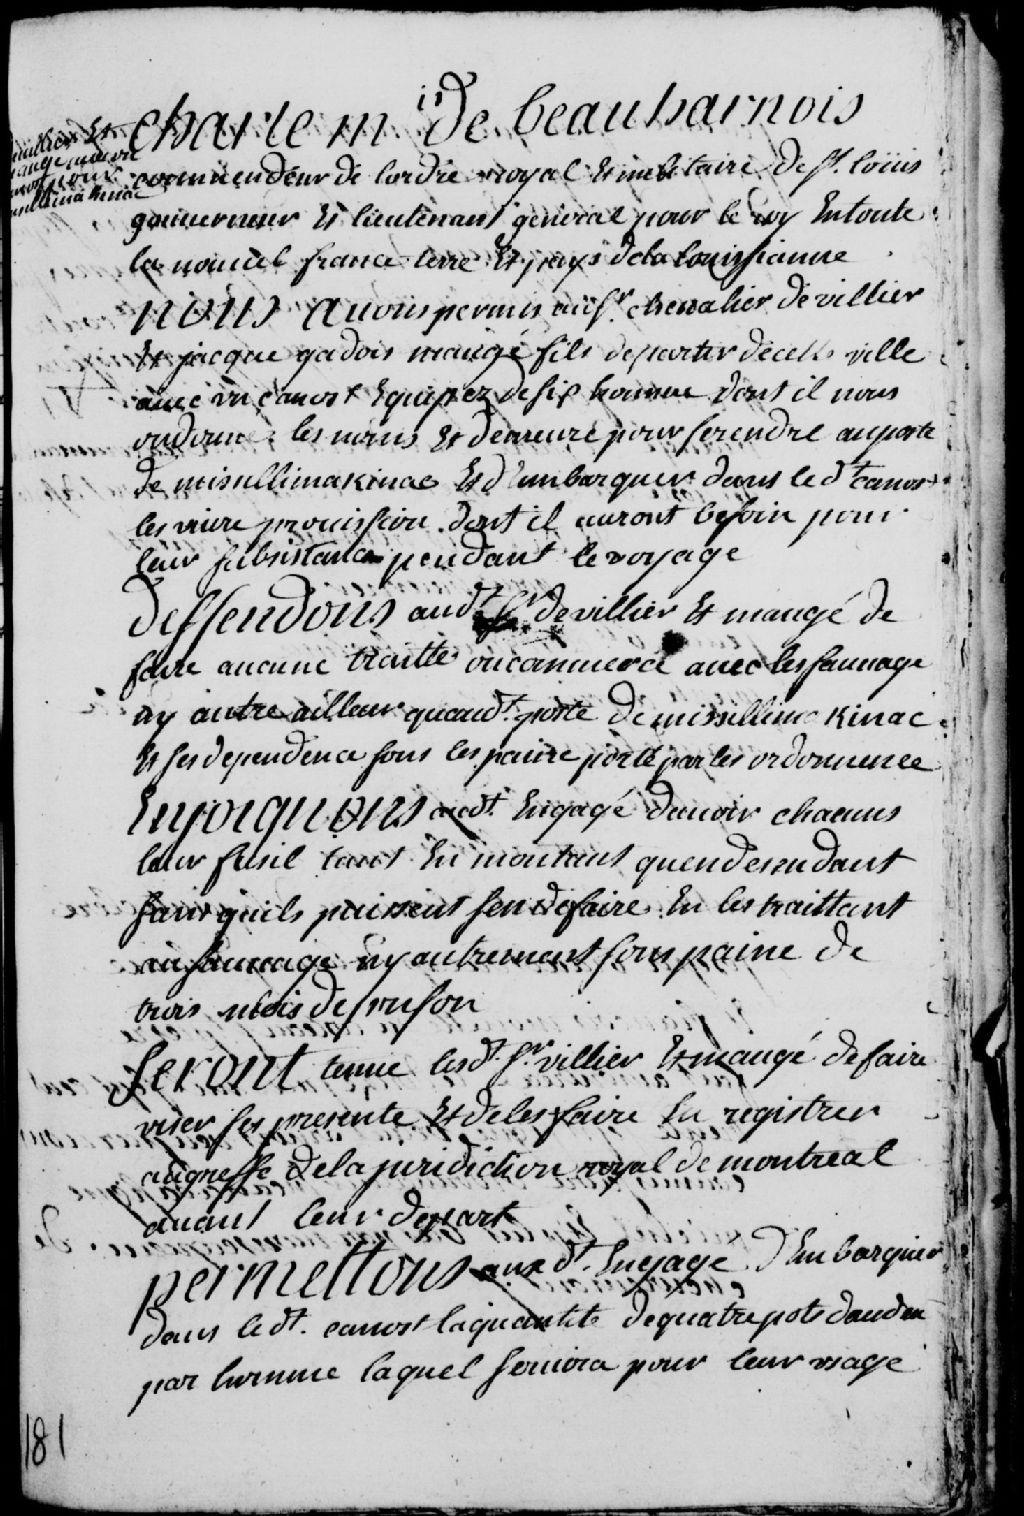 villier Et
mangé
canot pour
missilimakinac
charle m.is De beauharnois
commendeur de lordre royal Et militaire de st. loüis
gouuerneur Et lieutenant general pour le roy En toute
la nouuel france terre Et pays de la louissianne
nous auons permis au sr. chevalier de villier
Et jacque gadois maugé fils de partir de cette ville
auec vn canost Equipez de six homme dont il nous
ondonné les noms Et demeure pour se rendre au poste
de missillimakinac Et d'embarquer dans le dt. canost
les vivre prouission dont il auront besoin pour
leur subsistance pendant le voyage
Deffendons aud.t sr. de villier Et maugé de
faire aucune traitte ou commerce auec les sauuage
ny autre ailleur quaud.t poste de missillima Kinac
Et ses dependence sous les paine porté par les ordonnence
Enjoignons aud.t Engagé dauoir chacuns
leur fusil tant En montant quendesendant
sans quils puissent sen defaire En les traittant
au sauuage ny autrement sous paine de
trois mois de prison
seront tenue lesd.t sr. villier Et maugé de faire
viser ses presente Et de les faire En registrer
augreffe de la juridiction royal de montreal
auant leur depart
permettons aux d.t Engage D'Embarquer
dans led.t. canost laquantité de quatre pots daudevie
par homme laquel seruira pour leur usage
181